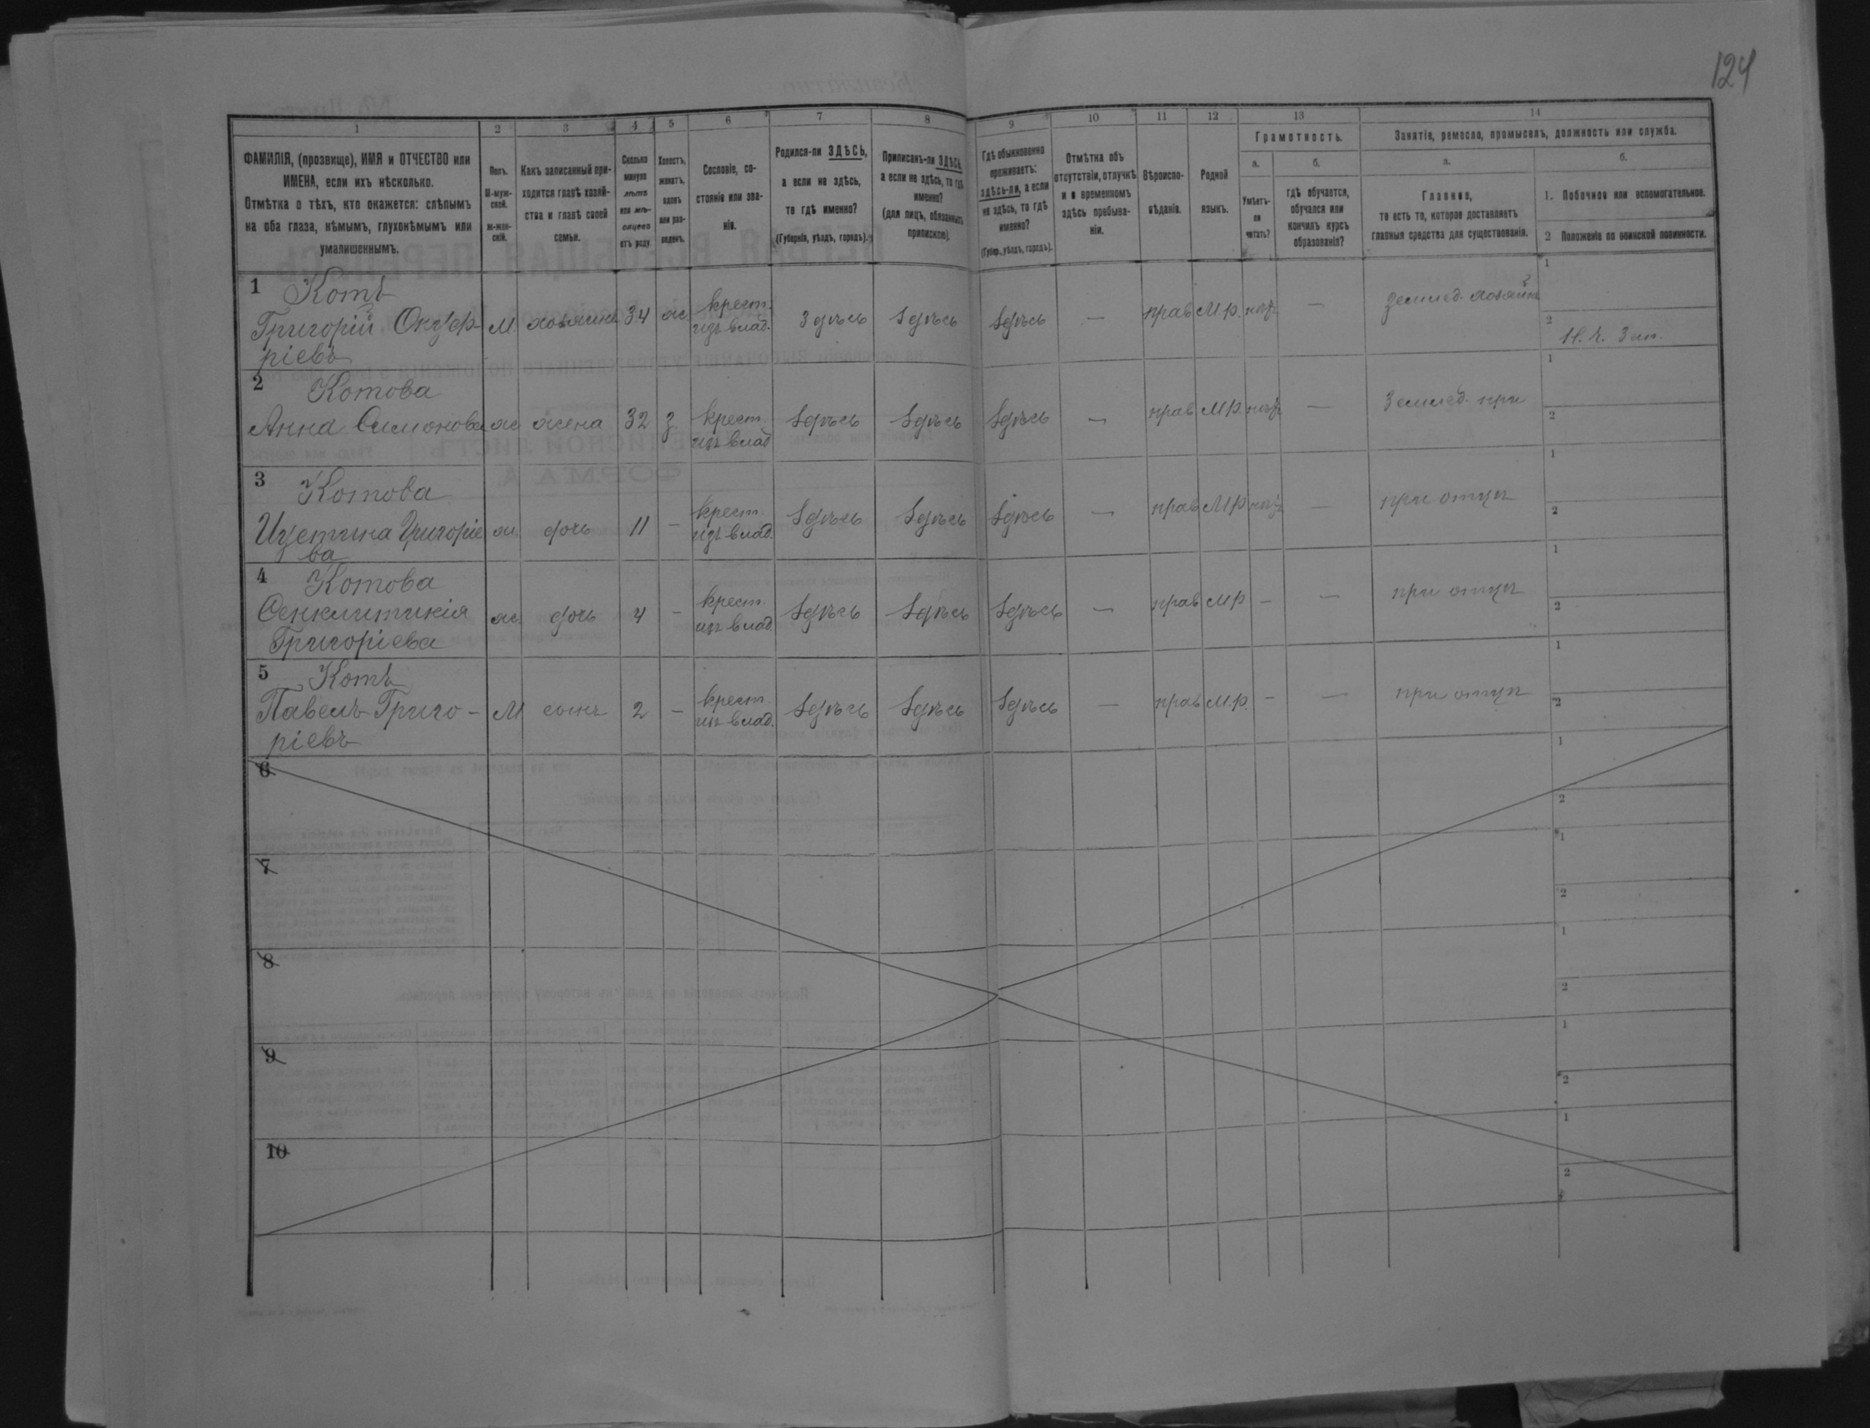 124
1 2 3 4 5 6 7 8 9 10 11 12 13 14
ФАМИЛІЯ, (прозвище), ИМЯ и ОТЧЕСТВО или
ИМЕНА, если ихъ нѣсколько.
Отмѣтка о тѣхъ, кто окажется: слѣпымъ
на оба глаза, нѣмымъ, глухонѣмымъ или
умалишеннымъ.
Полъ.
М-муж-
ской.
ж-жен-
скій.
Какъ записанный при-
ходится главѣ хозяй-
ства и главѣ своей
семьи.
Сколько
минуло
лѣтъ
или мѣ-
сяцевъ
отъ роду
Холостъ,
женатъ,
вдовъ
или раз-
веденъ.
Сословіе, со-
стояніе или зва-
ніе.
Родился-ли ЗДѢСЬ,
а если не здѣсь,
то гдѣ именно?
(Губернія, уѣздъ, городъ).
Приписанъ-ли ЗДѢСЬ,
а если не здѣсь, то гдѣ
именно?
(для лицъ, обязанныхъ
припискою).
Гдѣ обыкновенно
проживаетъ:
здѣсь-ли, а если
не здѣсь, то гдѣ
именно?
(Губер., уѣздъ, городъ).
Отмѣтка объ
отсутствіи, отлучкѣ
и о временномъ
здѣсь пребыва-
ніи.
Вѣроиспо-
вѣданіе.
Родной
языкъ.
Грамотность.
а.
Умѣетъ-
ли
читать?
б.
гдѣ обучается,
обучался или
кончилъ курсъ
образованія?
Занятіе, ремесло, промыселъ, должность или служба.
а.
Главное,
то есть то, которое доставляетъ
главныя средства для существованія.
б.
1. Побочное или вспомогательное.
2 Положеніе по воинской повинности.
1 Котъ
Григорій Онуф-
ріевъ
М хозяинъ 34 ж крест. изъ влад. здѣсь здѣсь здѣсь — прав М.р. нѣтъ — землед. хозяинъ
1
2
2 Котова
Анна Симонова ж жена 32 з крест. изъ влад здѣсь здѣсь здѣсь — прав М.р. нѣтъ — землед. при
1
2
3 Котова
Григоріе
ва
ж дочь 11 - крест. изъ влад. здѣсь здѣсь здѣсь — прав М.р нѣтъ — при отцѣ
1
2
4 Котова
Сенклитикія
Григоріева
ж дочь 4 - крест. изъ влад здѣсь здѣсь здѣсь — прав М.р - — при отцѣ
1
2
5 Котъ
Павелъ Григо-
ріевъ
М сынъ 2 - крест. изъ влад. здѣсь здѣсь здѣсь — прав М.р. - — при отцѣ
1
2
6
1
2
7
1
2
8
1
2
9
1
2
10
1
2